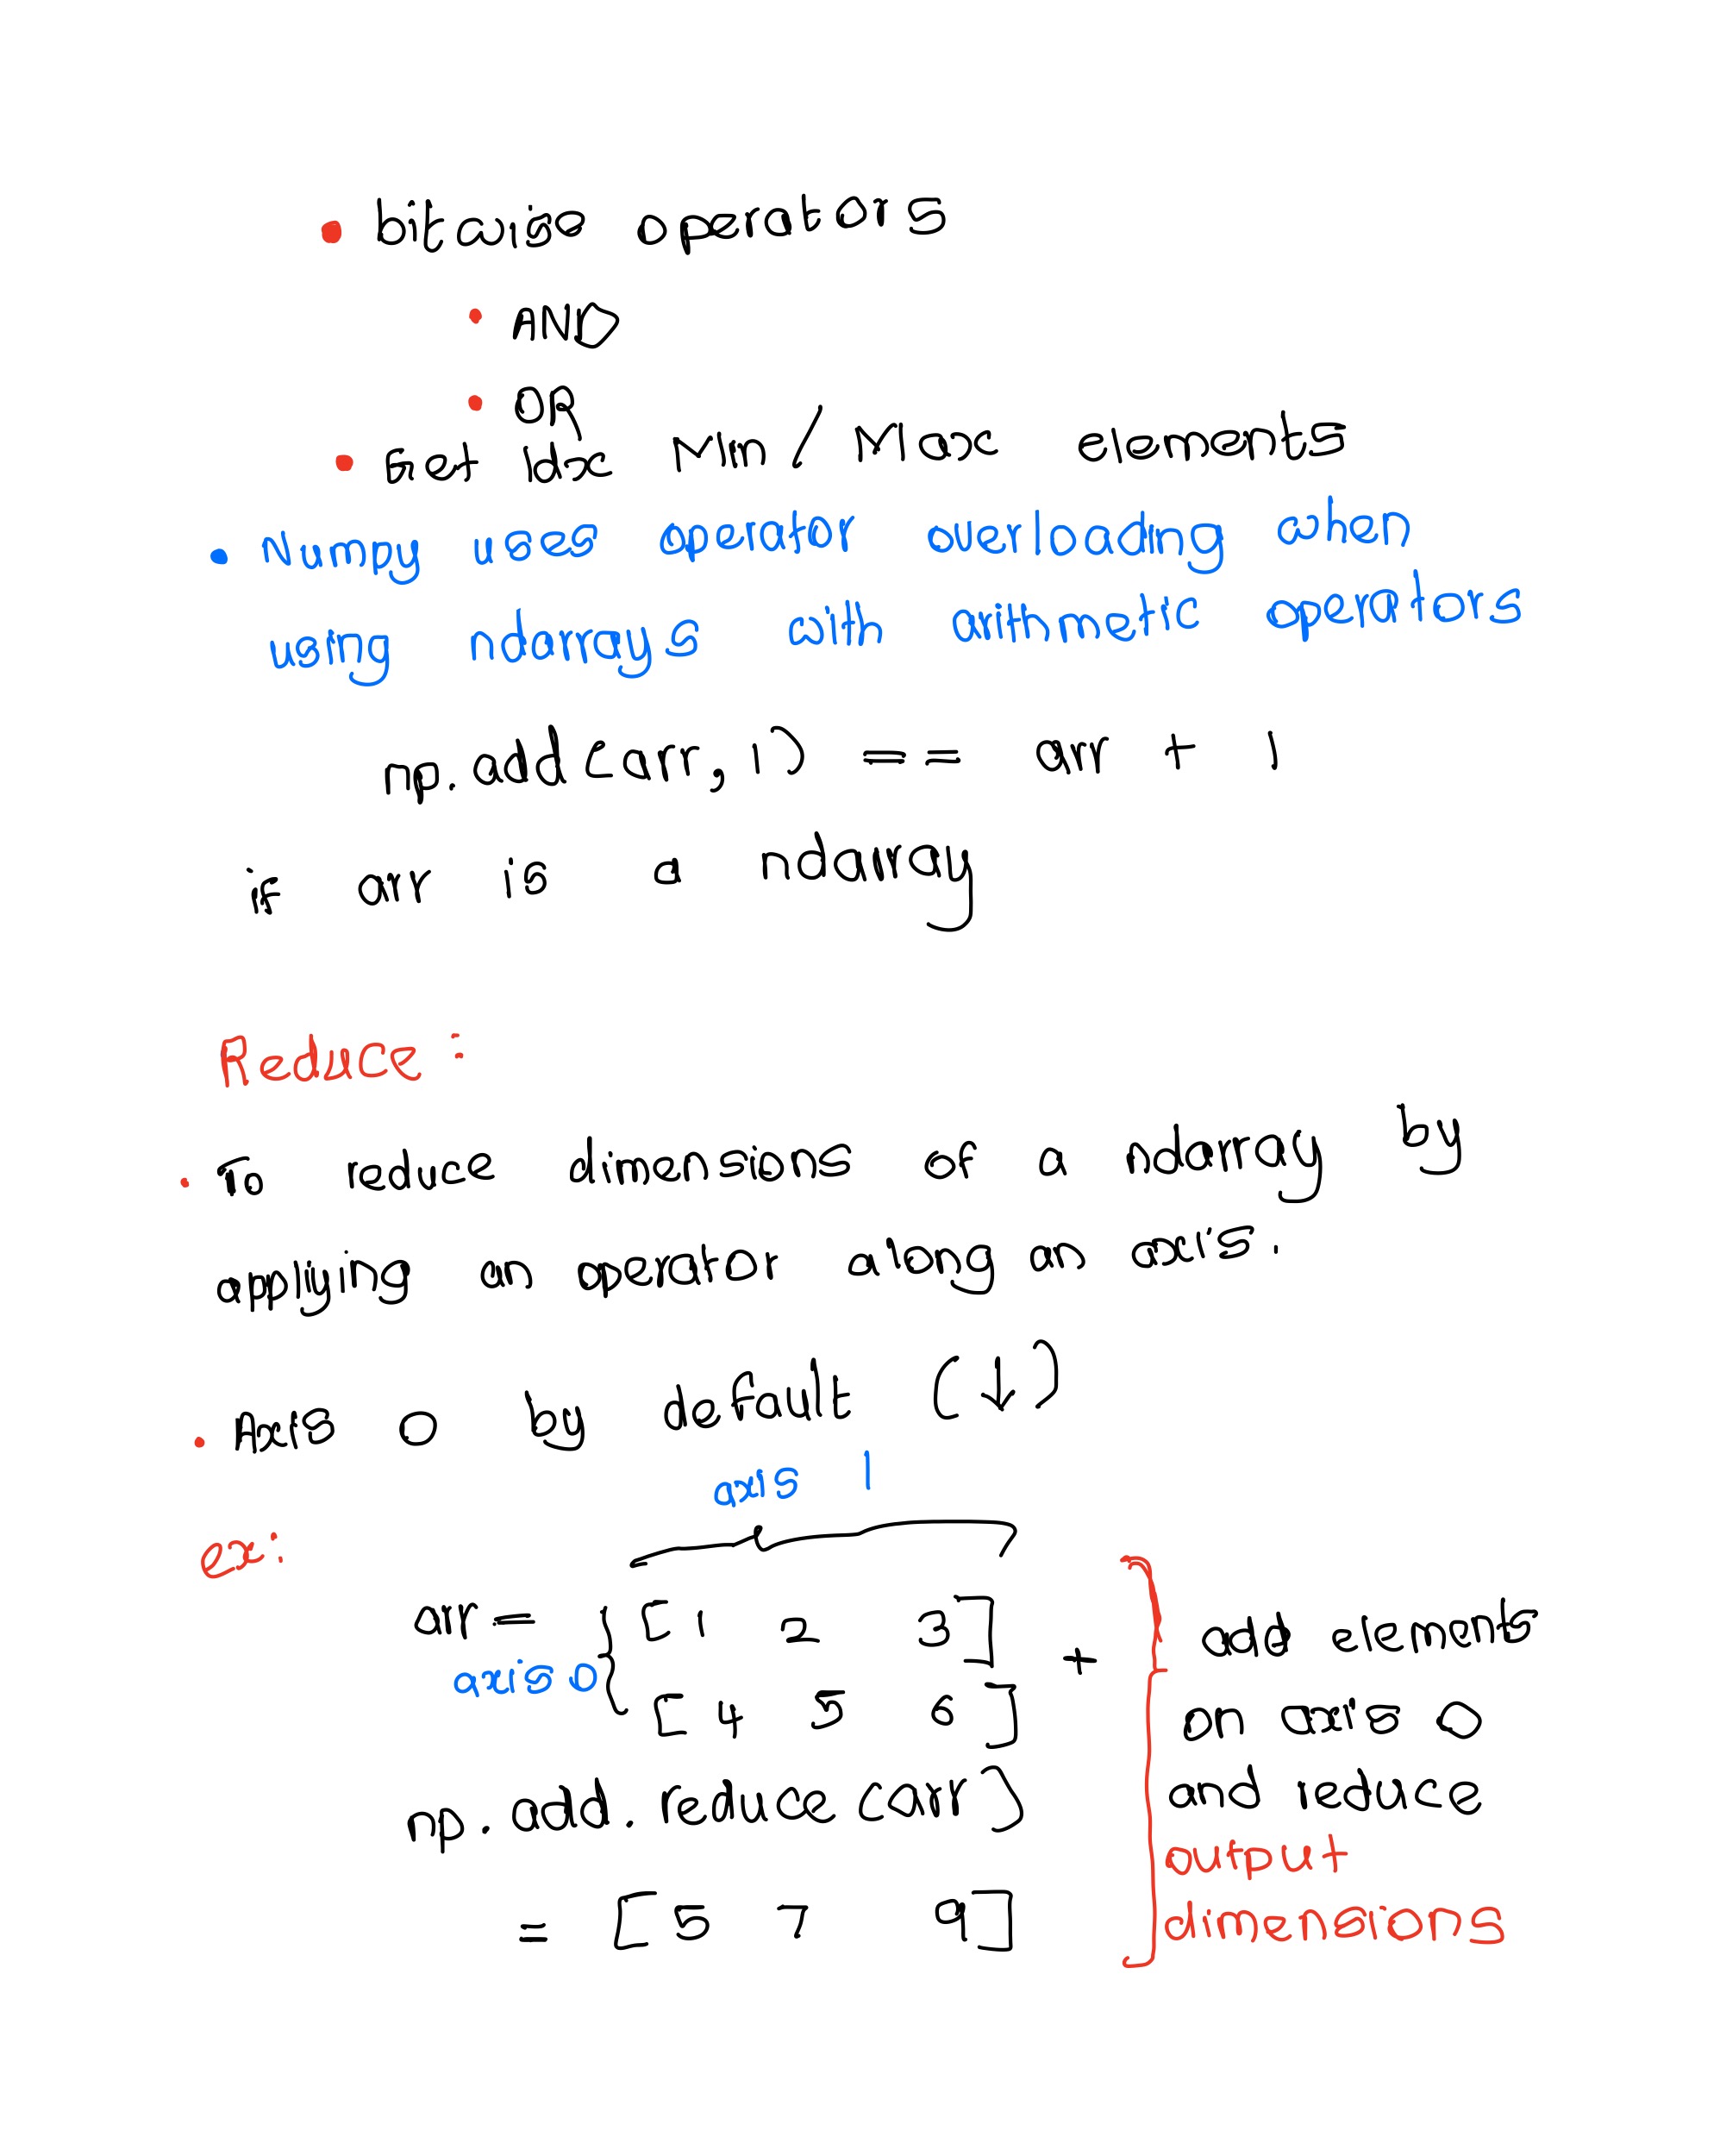 • bitwise operators
• AND
• OR
• Get idx Min / Max elements
• Numpy uses operator overloading when
using ndarrays with arithmetic operators
np.add(arr, 1) == arr + 1
if arr is a ndarray
Reduce:
• To reduce dimensions of a ndarray by
applying an operator along an axis.
• Axis 0 by default (↓)
axis 1
ex:
arr = [1 2 3]
axis 0
[4 5 6]
+
np.add.reduce(arr)
= [5 7 9]
add elements
on axis 0
and reduce
output
dimensions